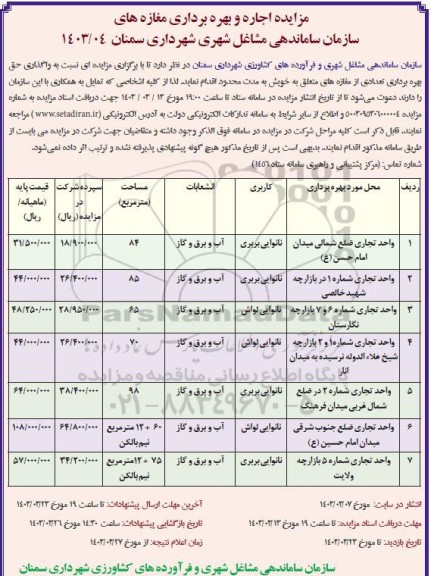 مزایده اجاره و بهره برداری مغازه های
سازمان ساماندهی مشاغل شهری شهرداری سمنان ۱۴۰۳/۰۴
سازمان ساماندهی مشاغل شهری و فرآورده های کشاورزی شهرداری سمنان در نظر دارد تا با برگزاری مزایده ای نسبت به واگذاری حق
بهره برداری تعدادی از مغازه های متعلق به خویش به مدت محدود اقدام نماید. لذا از کلیه اشخاصی که تمایل به همکاری با این سازمان
را دارند، دعوت می‌شود تا از تاریخ انتشار مزایده در سامانه ستاد تا ساعت ۱۹:۰۰ مورخ ۱۳ / ۰۳ / ۱۴۰۳ جهت دریافت اسناد مزایده به شماره
مزایده ۵۰۰۳۰۹۵۳۰۱۰۰۰۰۰۴ و اطلاع از سایر شرایط به سامانه تدارکات الکترونیکی دولت به آدرس الکترونیکی (www.setadiran.ir) مراجعه
نمایند. قابل ذکر است کلیه مراحل شرکت در مزایده در سامانه فوق الذکر وجود داشته و متقاضیان جهت شرکت در مزایده می بایست از
طریق سامانه مذکور اقدام نمایند. بدیهی است پس از تاریخ مذکور هیچ گونه پیشنهادی پذیرفته نشده و ترتیب اثر داده نمی‌شود.
شماره تماس: (مرکز پشتیبانی و راهبری سامانه ستاد ۱۴۵۶)
ردیف محل مورد بهره برداری کاربری انشعابات مساحت (مترمربع) سپرده شرکت در مزایده (ریال) قیمت پایه (ماهیانه/ریال)
۱ واحد تجاری ضلع شمالی میدان امام حسن (ع) نانوایی بربری آب و برق و گاز ۸۴ ۱۸/۹۰۰/۰۰۰ ۳۱/۵۰۰/۰۰۰
۲ واحد تجاری شماره ۱ در بازارچه شهید خالصی نانوایی بربری آب و برق و گاز ۸۵ ۲۶/۴۰۰/۰۰۰ ۴۴/۰۰۰/۰۰۰
۳ واحد تجاری شماره ۶ و ۷ بازارچه نگارستان نانوایی لواش آب و برق و گاز ۶۵ ۲۸/۹۵۰/۰۰۰ ۴۸/۲۵۰/۰۰۰
۴ واحد تجاری شماره ۱ و ۲ بازارچه شیخ علاء الدوله نرسیده به میدان انار نانوایی لواش آب و برق و گاز ۷۰ ۲۶/۴۰۰/۰۰۰ ۴۴/۰۰۰/۰۰۰
۵ واحد تجاری شماره ۲ در ضلع شمال غربی میدان فرهنگ نانوایی بربری آب و برق و گاز ۹۸ ۳۸/۴۰۰/۰۰۰ ۶۴/۰۰۰/۰۰۰
۶ واحد تجاری ضلع جنوب شرقی میدان امام حسین (ع) نانوایی لواش آب و برق و گاز ۶۰ + ۱۲ مترمربع نیم بالکن ۶۴/۸۰۰/۰۰۰ ۱۰۸/۰۰۰/۰۰۰
۷ واحد تجاری شماره ۵ بازارچه ولایت نانوایی بربری آب و برق و گاز ۷۵ + ۱۲ مترمربع نیم بالکن ۳۴/۲۰۰/۰۰۰ ۵۷/۰۰۰/۰۰۰
ParsNamadData
پایگاه اطلاع رسانی مناقصه و مزایده
۰۲۱-۸۸۳۴۹۶۷۰
انتشار در سایت: مورخ ۱۴۰۳/۰۳/۰۷ آخرین مهلت ارسال پیشنهادات: تا ساعت ۱۹ مورخ ۱۴۰۳/۰۳/۲۳
مهلت دریافت اسناد مزایده: تا ساعت ۱۹ مورخ ۱۴۰۳/۰۳/۱۳ تاریخ بازگشایی پیشنهادات: ساعت ۱۴:۳۰ مورخ ۱۴۰۳/۰۳/۲۶
تاریخ بازدید: تا مورخ ۱۴۰۳/۰۳/۲۳ زمان اعلام نتیجه: از مورخ ۱۴۰۳/۰۳/۲۷
سازمان ساماندهی مشاغل شهری و فرآورده های کشاورزی شهرداری سمنان